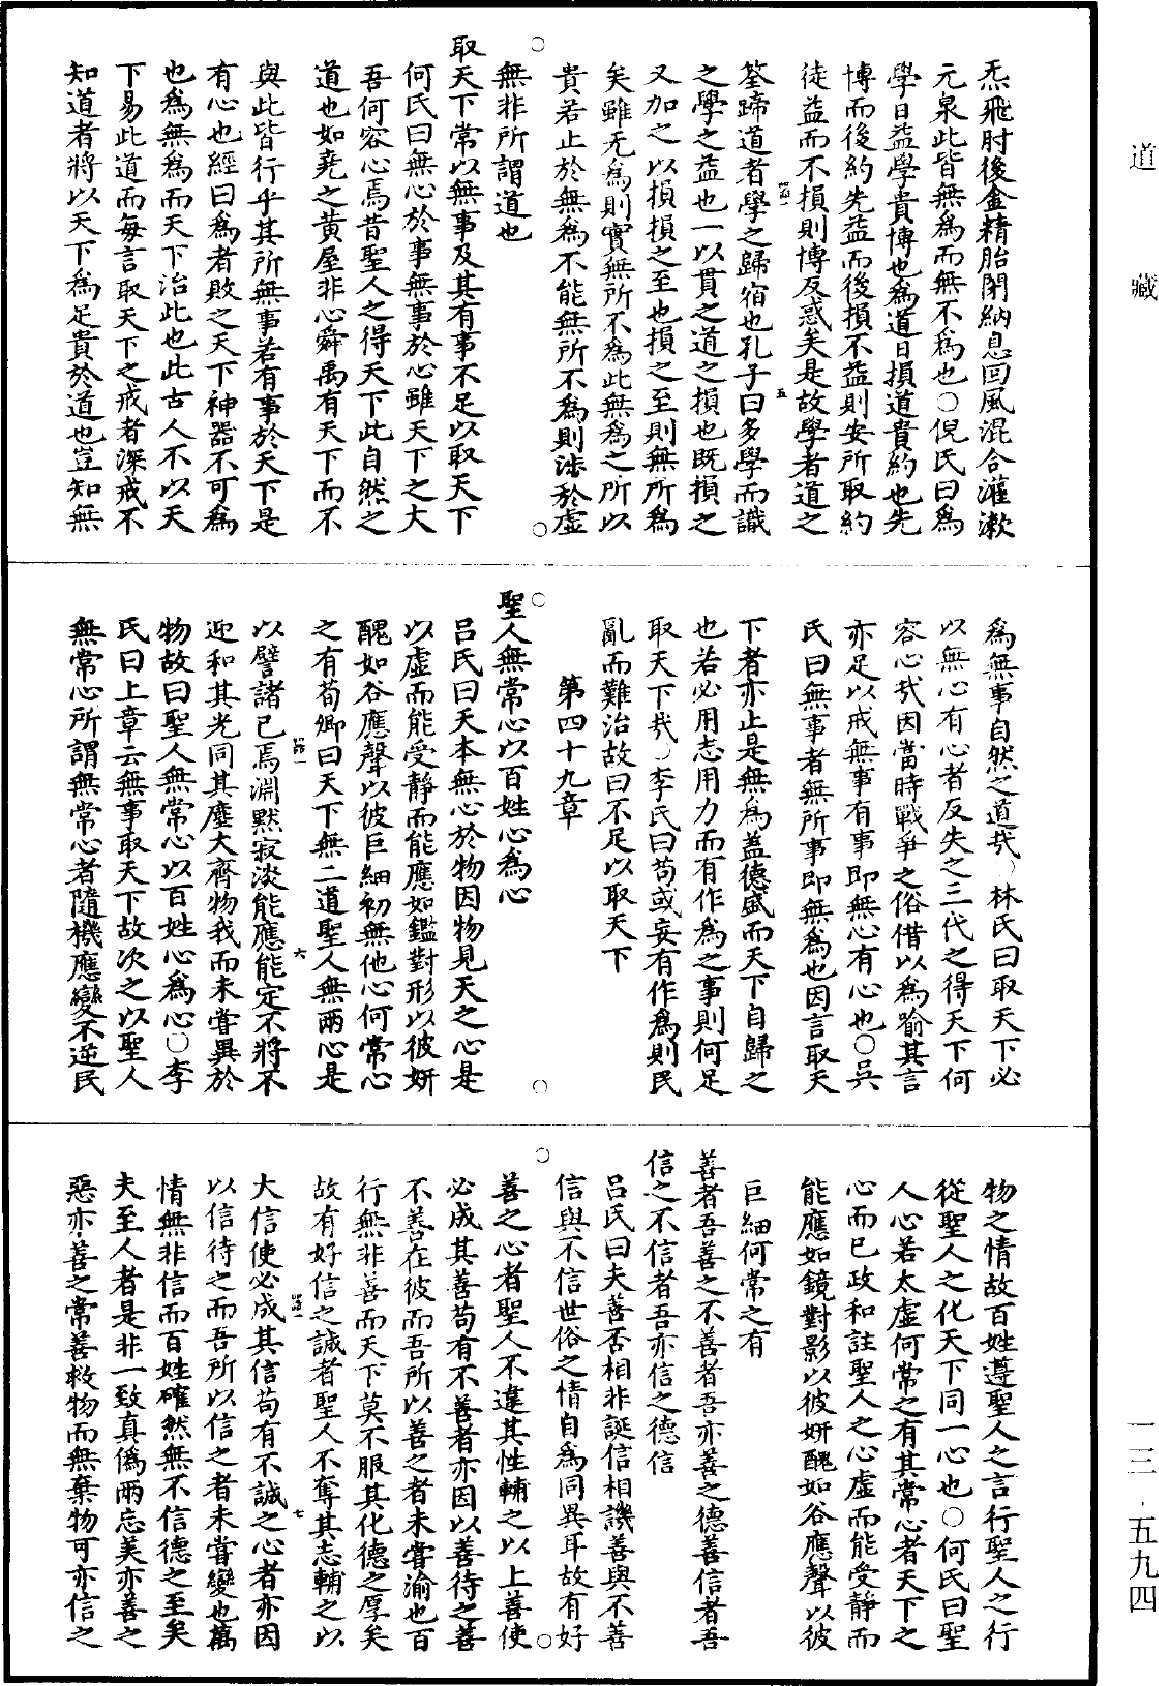 道藏
炁飛肘後金精胎閉納息回風混合灌漱
元泉此皆無為而無不為也○倪氏曰為
學日益學貴博也為道日損道貴約也先
博而後約先益而後損不益則安所取約
徒益而不損則博反惑矣是故學者道之
五
筌蹄道者學之歸宿也孔子曰多學而識
之學之益也一以貫之道之損也既損之
又加之以損損之至也損之至則無所為
矣雖无為則實無所不為此無為之所以
貴若止於無為不能無所不為則涉於虛
無非所謂道也
取天下常以無事及其有事不足以取天下
何氏曰無心於事無事於心雖天下之大
吾何容心焉昔聖人之得天下此自然之
道也如堯之黃屋非心舜禹有天下而不
與此皆行乎其所無事若有事於天下是
有心也經曰為者敗之天下神器不可為
也為無為而天下治此也此古人不以天
下易此道而每言取天下之戒者深戒不
知道者將以天下為足貴於道也豈知無
為無事自然之道哉○林氏曰取天下必
以無心有心者反失之三代之得天下何
容心哉因當時戰爭之俗借以為喻其言
亦足以戒無事有事即無心有心也○吳
氏曰無事者無所事即無為也因言取天
下者亦止是無為蓋德盛而天下自歸之
也若必用志用力而有作為之事則何足
取天下哉○李氏曰苟或妄有作為則民
亂而難治故曰不足以取天下
第四十九章
聖人無常心以百姓心為心
呂氏曰天本無心於物因物見天之心是
以虛而能受靜而能應如鑑對形以彼妍
醜如谷應聲以彼巨細初無他心何常心
之有荀卿曰天下無二道聖人無兩心是
六
以譬諸己焉淵默寂淡能應能定不將不
迎和其光同其塵大齊物我而未嘗異於
物故曰聖人無常心以百姓心為心○李
氏曰上章云無事取天下故次之以聖人
無常心所謂無常心者隨機應變不逆民
物之情故百姓遵聖人之言行聖人之行
從聖人之化天下同一心也○何氏曰聖
人心若太虛何常之有其常心者天下之
心而已政和註聖人之心虛而能受靜而
能應如鏡對影以彼妍醜如谷應聲以彼
巨細何常之有
善者吾善之不善者吾亦善之德善信者吾
信之不信者吾亦信之德信
呂氏曰夫善否相非誕信相譏善與不善
信與不信世俗之情自為同異耳故有好
善之心者聖人不違其性輔之以上善使
必成其善苟有不善者亦因以善待之善
不善在彼而吾所以善之者未嘗渝也百
行無非善而天下莫不服其化德之厚矣
故有好信之誠者聖人不奪其志輔之以
七
大信使必成其信苟有不誠之心者亦因
以信待之而吾所以信之者未嘗變也萬
情無非信而百姓確然無不信德之至矣
夫至人者是非一致真偽兩忘美亦善之
惡亦善之常善救物而無棄物可亦信之
一三·五九四